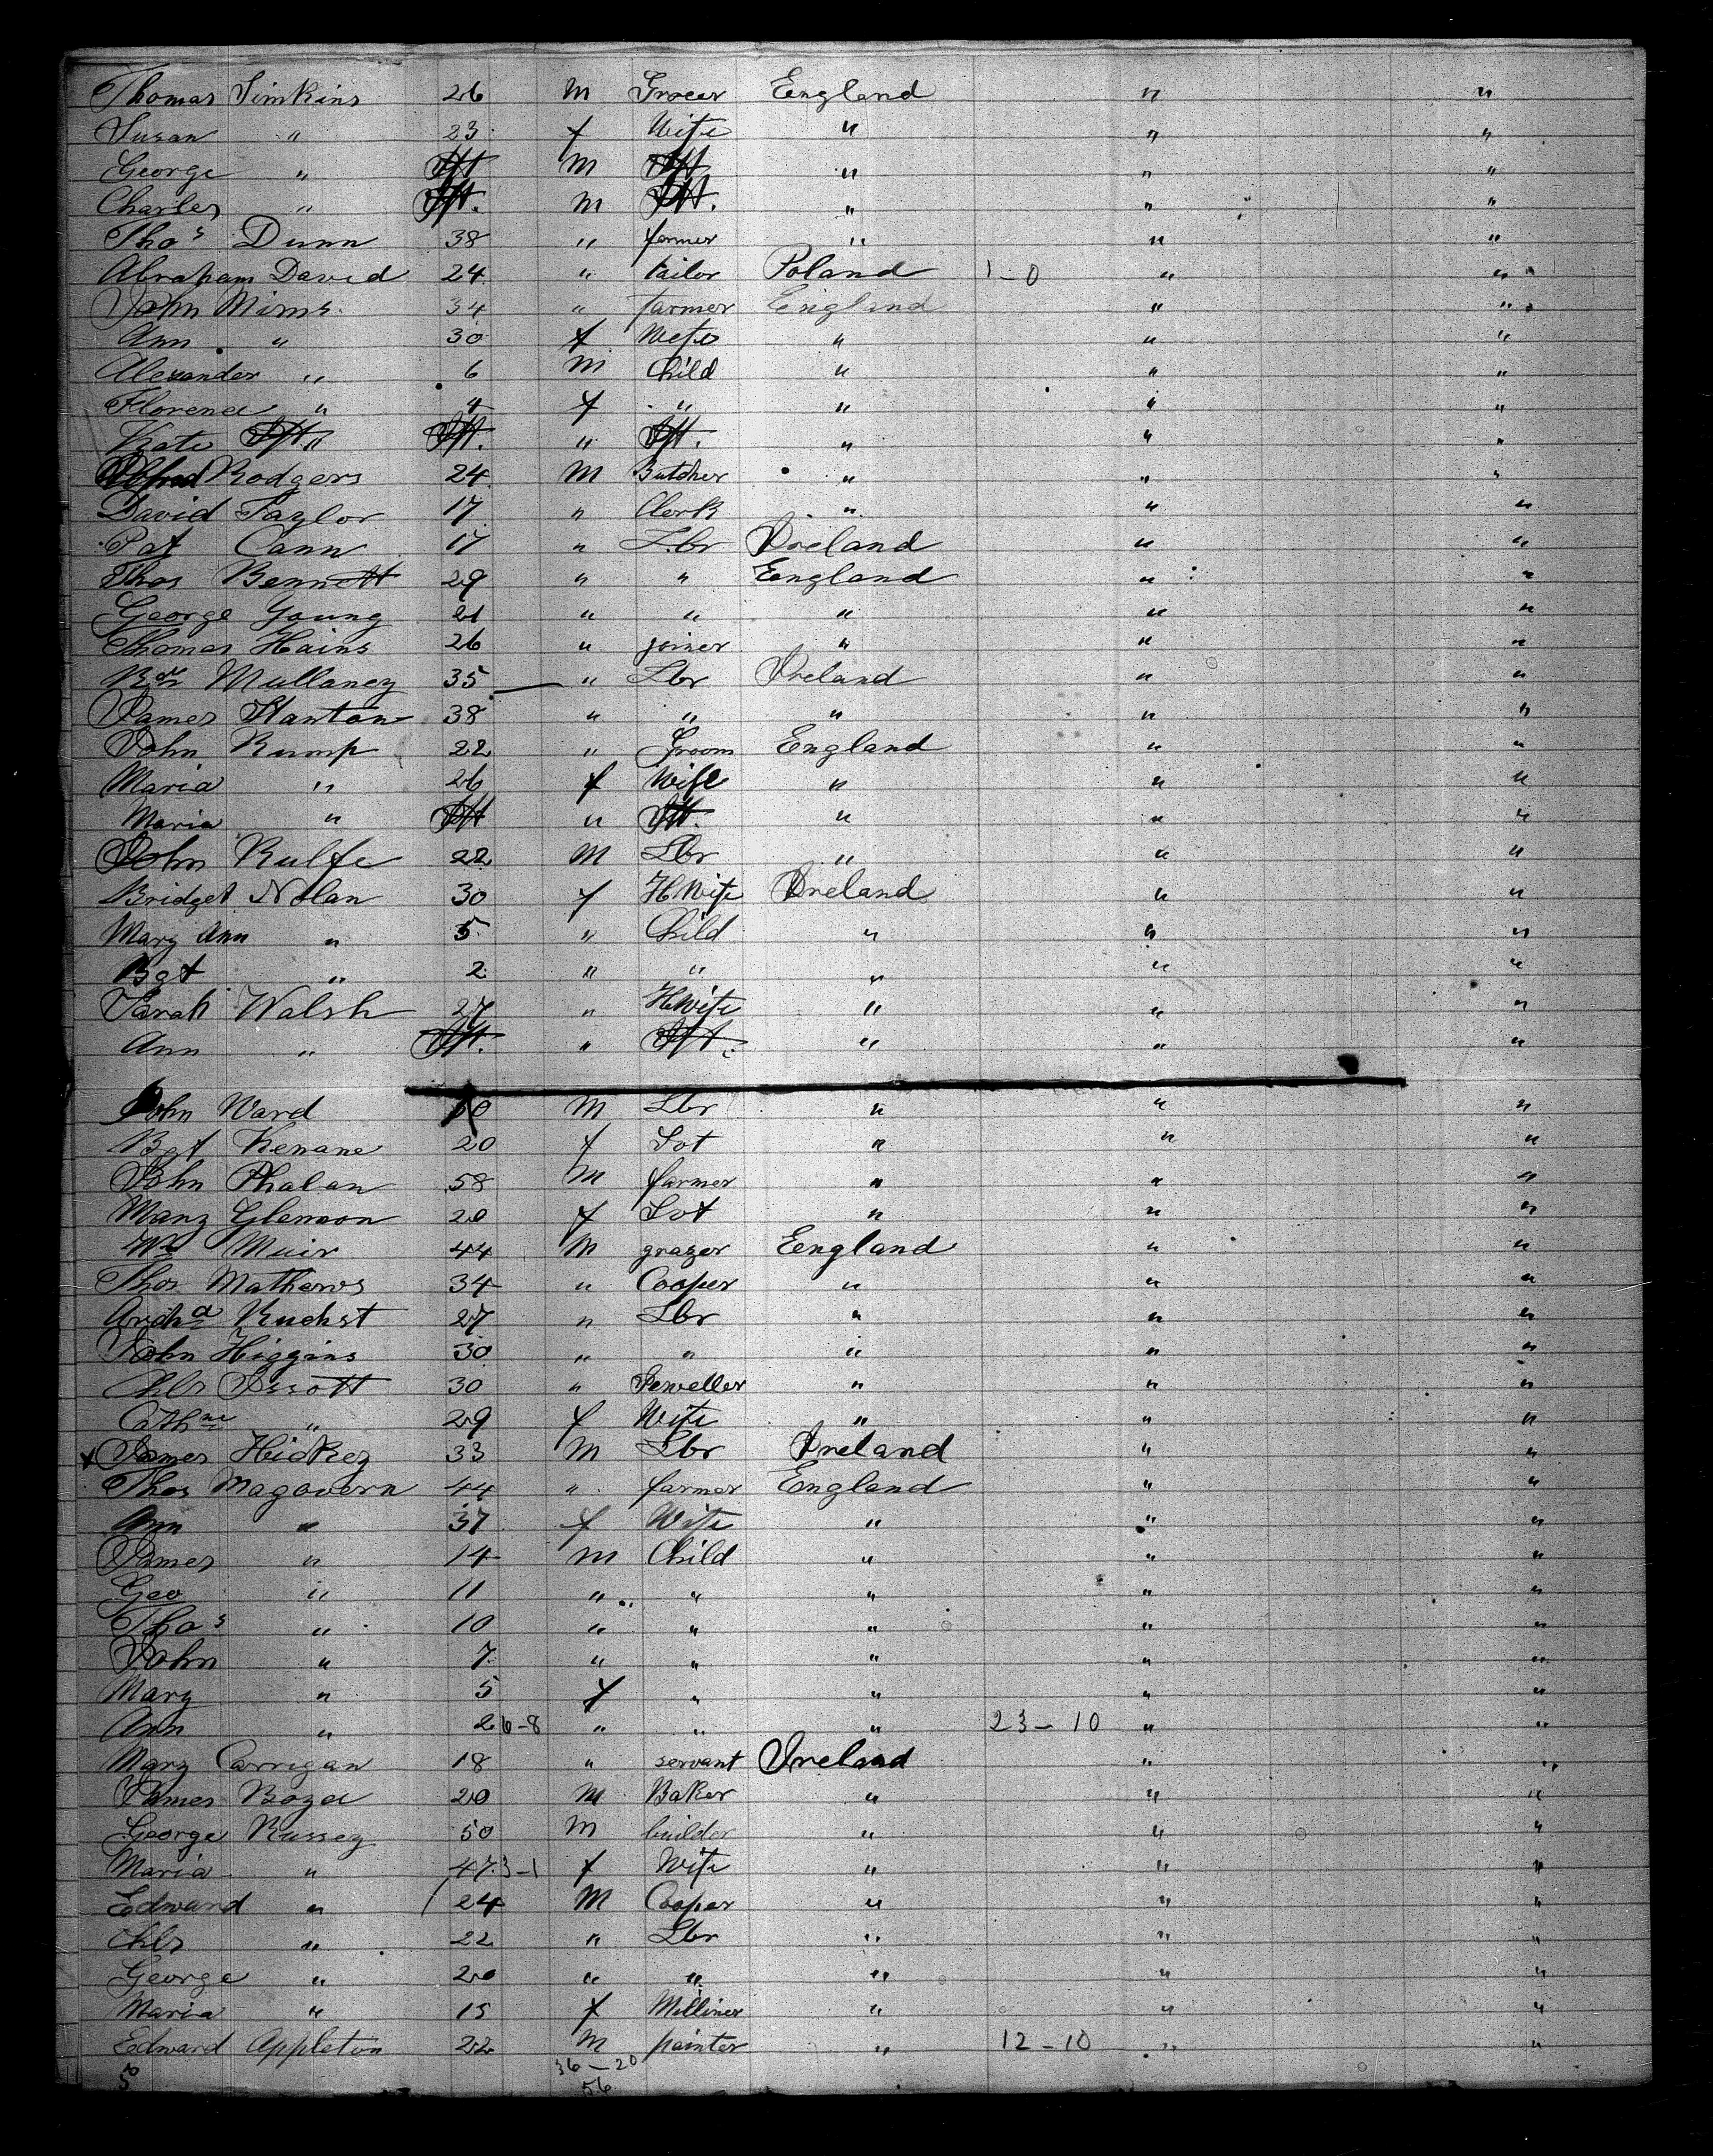 Thomas Simkins 26 M Grocer England " "
Susan " 23 f Wife " " "
George " Ift M Ift " " "
Charles " Ift. M Ift. " " "
Thos Dunn 38 " farmer " " "
Abraham David 24 " tailor Poland 1-0 " "
John Mims 34 " farmer England " "
Ann " 30 f Wife " " "
Alexander " 6 M Child " " "
Florence " 4 f " " " "
Kate Ift. " Ift. " Ift. " " "
Alfred Rodgers 24 M Butcher " " "
David Taylor 17 " Clerk " " "
Pat Cann 17 " Lbr Ireland " "
Thos Bennett 29 " " England " "
George Young 21 " " " " "
Thomas Hains 26 " joiner " " "
Mullaney 35 " Lbr Ireland " "
James Stanton 38 " " " " "
John Rump 22 " Groom England " "
Maria " 26 f Wife " " "
Maria " Ift " Ift. " " "
John Rulfe 22 M Lbr " " "
Bridget Nolan 30 f HWife Ireland " "
Mary Ann " 5 " Child " " "
Bgt " 2 " " " " "
Sarah Walsh 27 " HWife " " "
Ann " Ift. " Ift. " " "
John Ward M Lbr " " "
Bgt Kenane 20 f Svt " " "
John Phalan 58 M farmer " " "
Mary Glennon 20 f Svt " " "
Wm Muir 44 M grazer England " "
Thos Mathews 34 " Cooper " " "
Archd Ruchst 27 " Lbr " " "
John Higgins 30 " " " " "
Chls Issott 30 " Jeweller " " "
Cathne " 29 f Wife " " "
x James Hickey 33 M Lbr Ireland " "
Thos Magovern 44 " farmer England " "
Ann " 37 f Wife " " "
James " 14 M Child " " "
Geo " 11 " " " " "
Thos " 10 " " " " "
John " 7 " " " " "
Mary " 5 f " " " "
Ann " 2 6-8 " " " 23-10 " "
Mary Carrigan 18 " servant Ireland " "
James Boyd 20 M Baker " " "
George Russey 50 M builder " " "
Maria " 47 3-1 f Wife " " "
Edward " 24 M Cooper " " "
Chls " 22 " Lbr " " "
George " 20 " " " " "
Maria " 15 f Milliner " " "
Edward Appleton 22 M painter " 12-10 " "
36-20
56